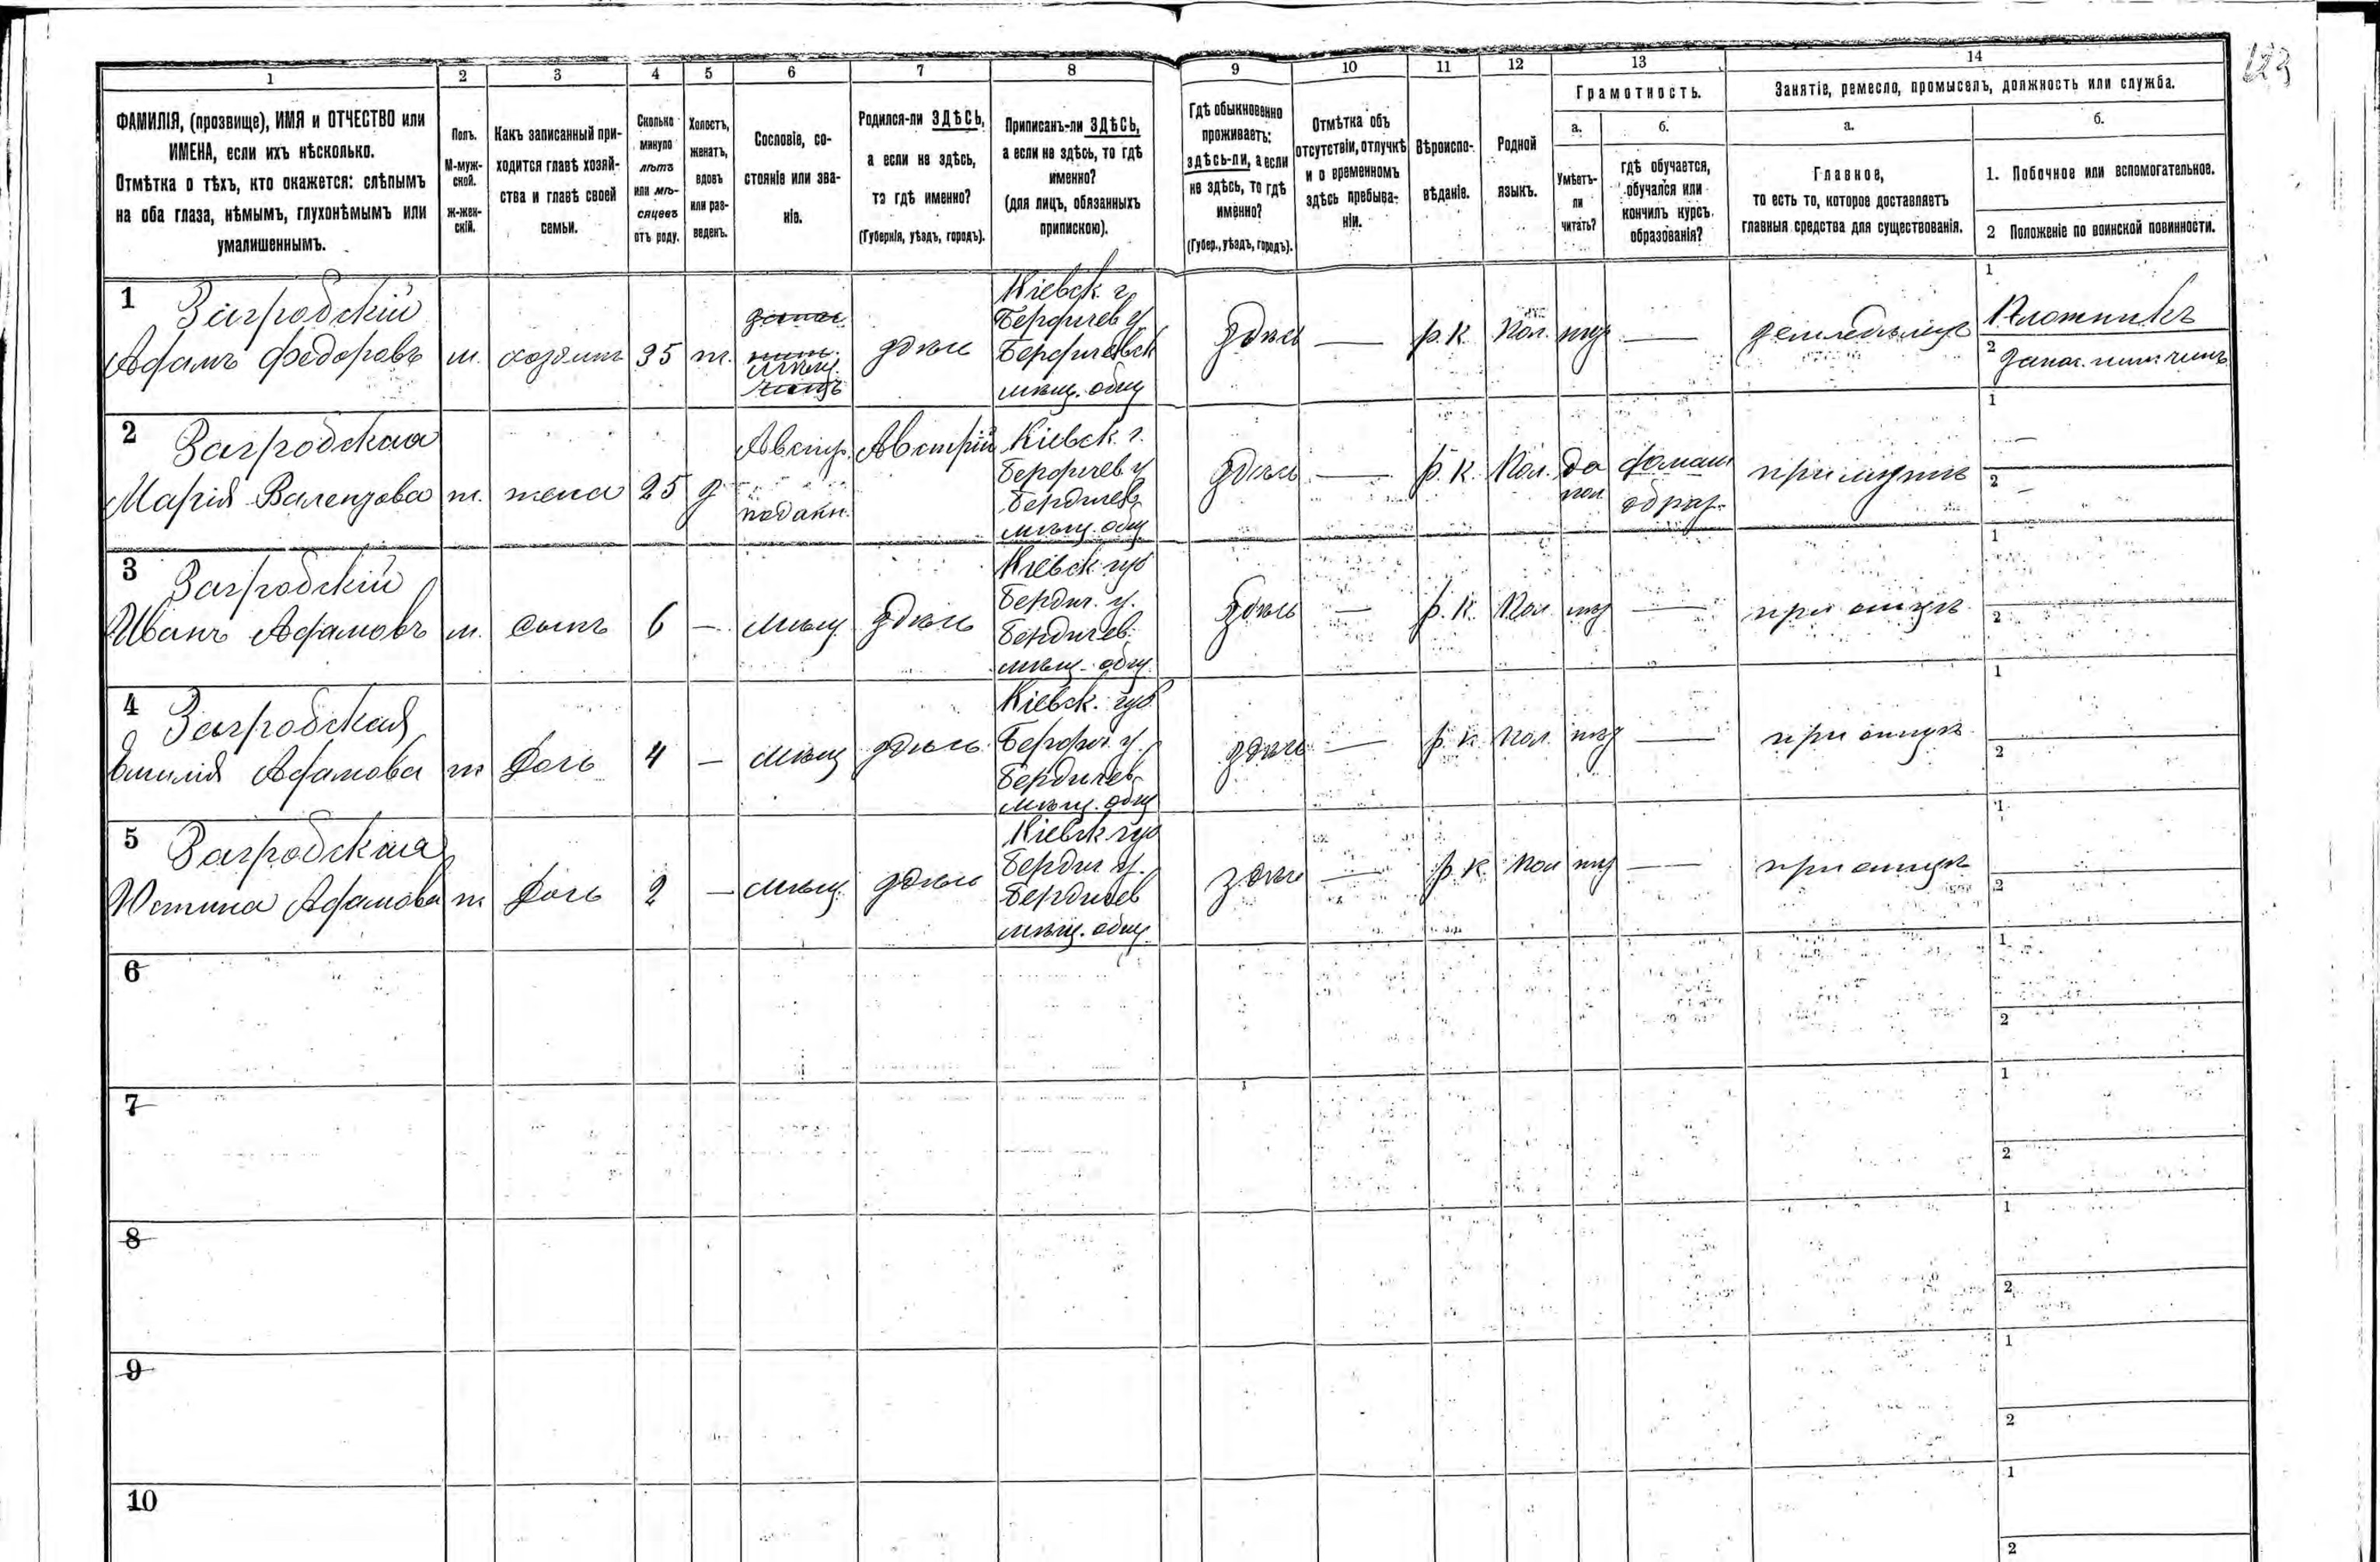 123
1 2 3 4 5 6 7 8 9 10 11 12 13 14
ФАМИЛІЯ, (прозвище), ИМЯ и ОТЧЕСТВО или
ИМЕНА, если ихъ нѣсколько.
Отмѣтка о тѣхъ, кто окажется: слѣпымъ
на оба глаза, нѣмымъ, глухонѣмымъ или
умалишеннымъ.
Полъ.
М-муж-
ской.
ж-жен-
скій.
Какъ записанный при-
ходится главѣ хозяй-
ства и главѣ своей
семьи.
Сколько
минуло
лѣтъ
или мѣ-
сяцевъ
отъ роду.
Холостъ,
женатъ,
вдовъ
или раз-
веденъ.
Сословіе, со-
стояніе или зва-
ніе.
Родился-ли ЗДѢСЬ,
а если не здѣсь,
то гдѣ именно?
(Губернія, уѣздъ, городъ).
Приписанъ-ли ЗДѢСЬ,
а если не здѣсь, то гдѣ
именно?
(для лицъ, обязанныхъ
припискою).
Гдѣ обыкновенно
проживаетъ:
здѣсь-ли, а если
не здѣсь, то гдѣ
именно?
(Губер., уѣздъ, городъ).
Отмѣтка объ
отсутствіи, отлучкѣ
и о временномъ
здѣсь пребыва-
ніи.
Вѣроиспо-
вѣданіе.
Родной
языкъ.
Грамотность.
а.
Умѣетъ-
ли
читать?
б.
гдѣ обучается,
обучался или
кончилъ курсъ
образованія?
Занятіе, ремесло, промыселъ, должность или служба.
а.
Главное,
то есть то, которое доставляетъ
главныя средства для существованія.
б.
1. Побочное или вспомогательное.
2 Положеніе по воинской повинности.
1 Загродскій
Адамъ Федоровъ
м.
хозяинъ
35
ж.
запас
ниж.
мѣщ.
чинъ
здѣсь
Кіевск. г.
Бердичев у
Бердичевск
мѣщ. общ
здѣсь
—
р. к.
Пол.
нѣт
—
земледѣлец
1 Плотникъ
2 Запас. ниж. чинъ
2 Загродская
Марія Валентова
ж.
жена
25
з
Австр.
поддан.
Австрій
Кіевск. г.
Бердичев. у
Бердичев.
мѣщ. общ
здѣсь
—
р. к.
Пол.
да
пол.
домаш
образ.
при мужѣ
1 —
2 —
3 Загродскій
Иванъ Адамовъ
м.
сынъ
6
—
мѣщ
здѣсь
Кіевск губ
Бердич. у.
Бердичев.
мѣщ. общ.
здѣсь
—
р. к.
Пол.
нѣт
—
при отцѣ
1
2
4 Загродская
Емилія Адамова
ж
дочь
4
—
мѣщ
здѣсь
Кіевск. губ
Бердич. у.
Бердичев
мѣщ. общ
здѣсь
—
р. к.
пол.
нѣт
—
при отцѣ
1
2
5 Загродская
Юстина Адамова
ж
дочь
2
—
мѣщ.
здѣсь
Кіевск губ
Бердич у.
Бердичев
мѣщ. общ.
здѣсь
—
р. к.
пол
нѣт
—
при отцѣ
1
2
6
1
2
7
1
2
8
1
2
9
1
2
10
1
2